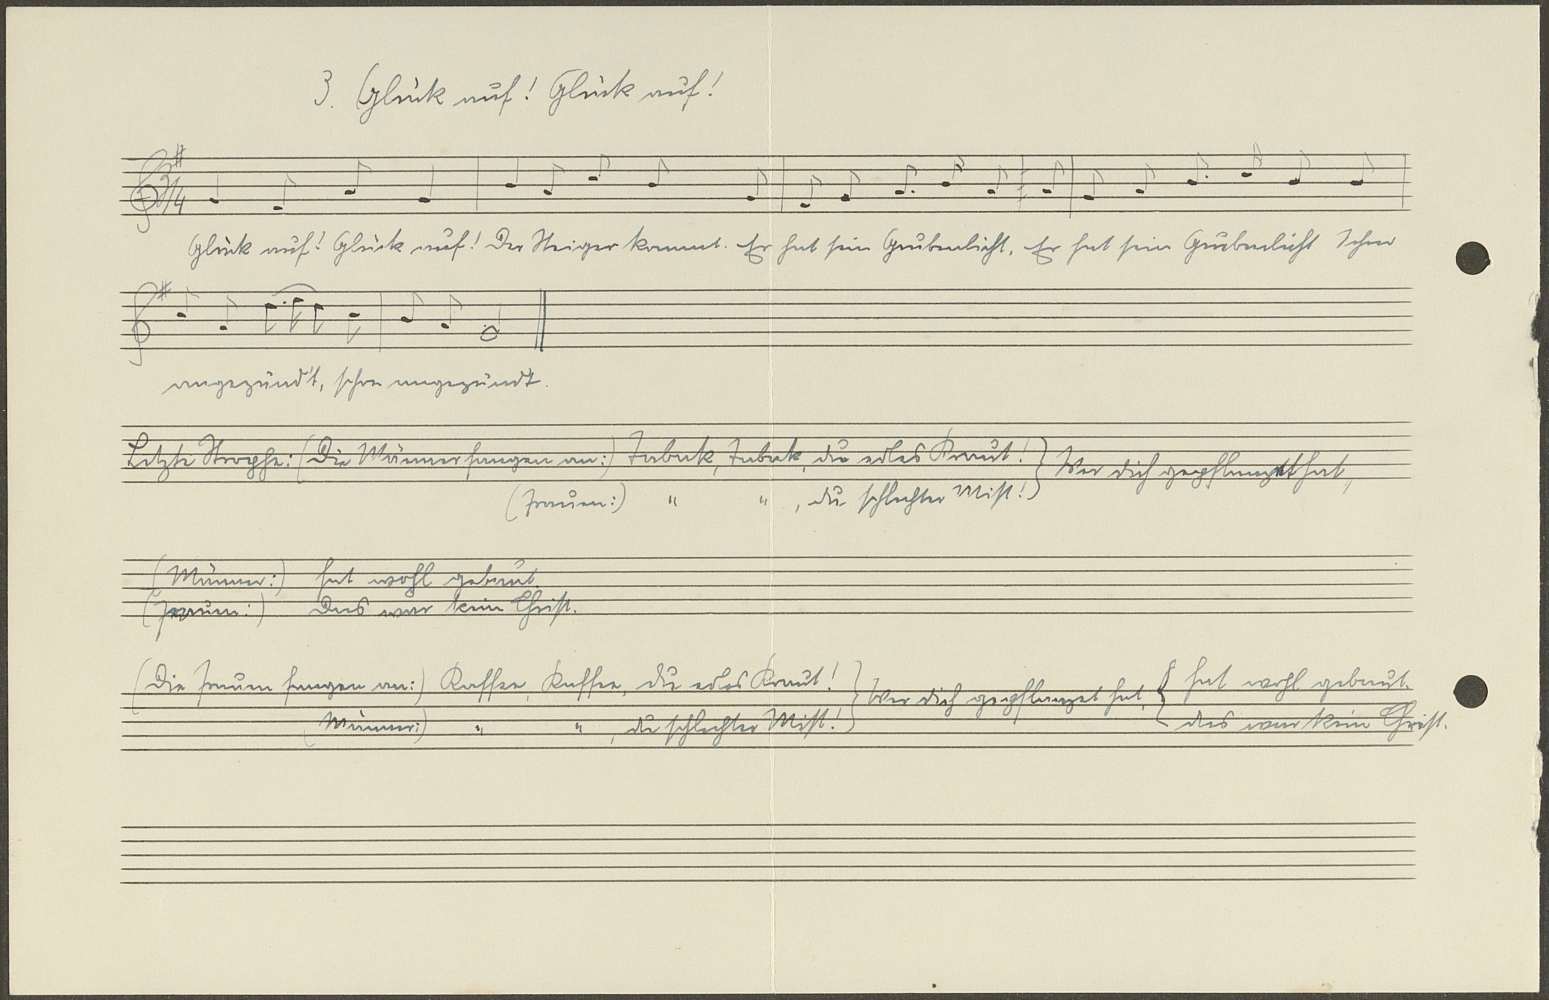 3. Glück auf! Glück auf!
3/4
Glück auf! Glück auf! Der Steiger kommt. Er hat sein Grubenlicht, Er hat sein Grubenlicht Schon
angezündt, schon angezündt.
Letzte Strophe: (Die Männer fangen an:) Tabak, Tabak, du edles Kraut! } Wer dich gepflanzt hat,
(Frauen:) " " , du schlechter Mist! }
(Männer:) hat wohl gebaut.
(Frauen:) Das war kein Christ.
(Die Frauen fangen an:) Kaffee, Kaffee, du edles Kraut! } Wer dich gepflanzet hat, { hat wohl gebaut.
(Männer:) " " , du schlechter Mist! } { das war kein Christ.